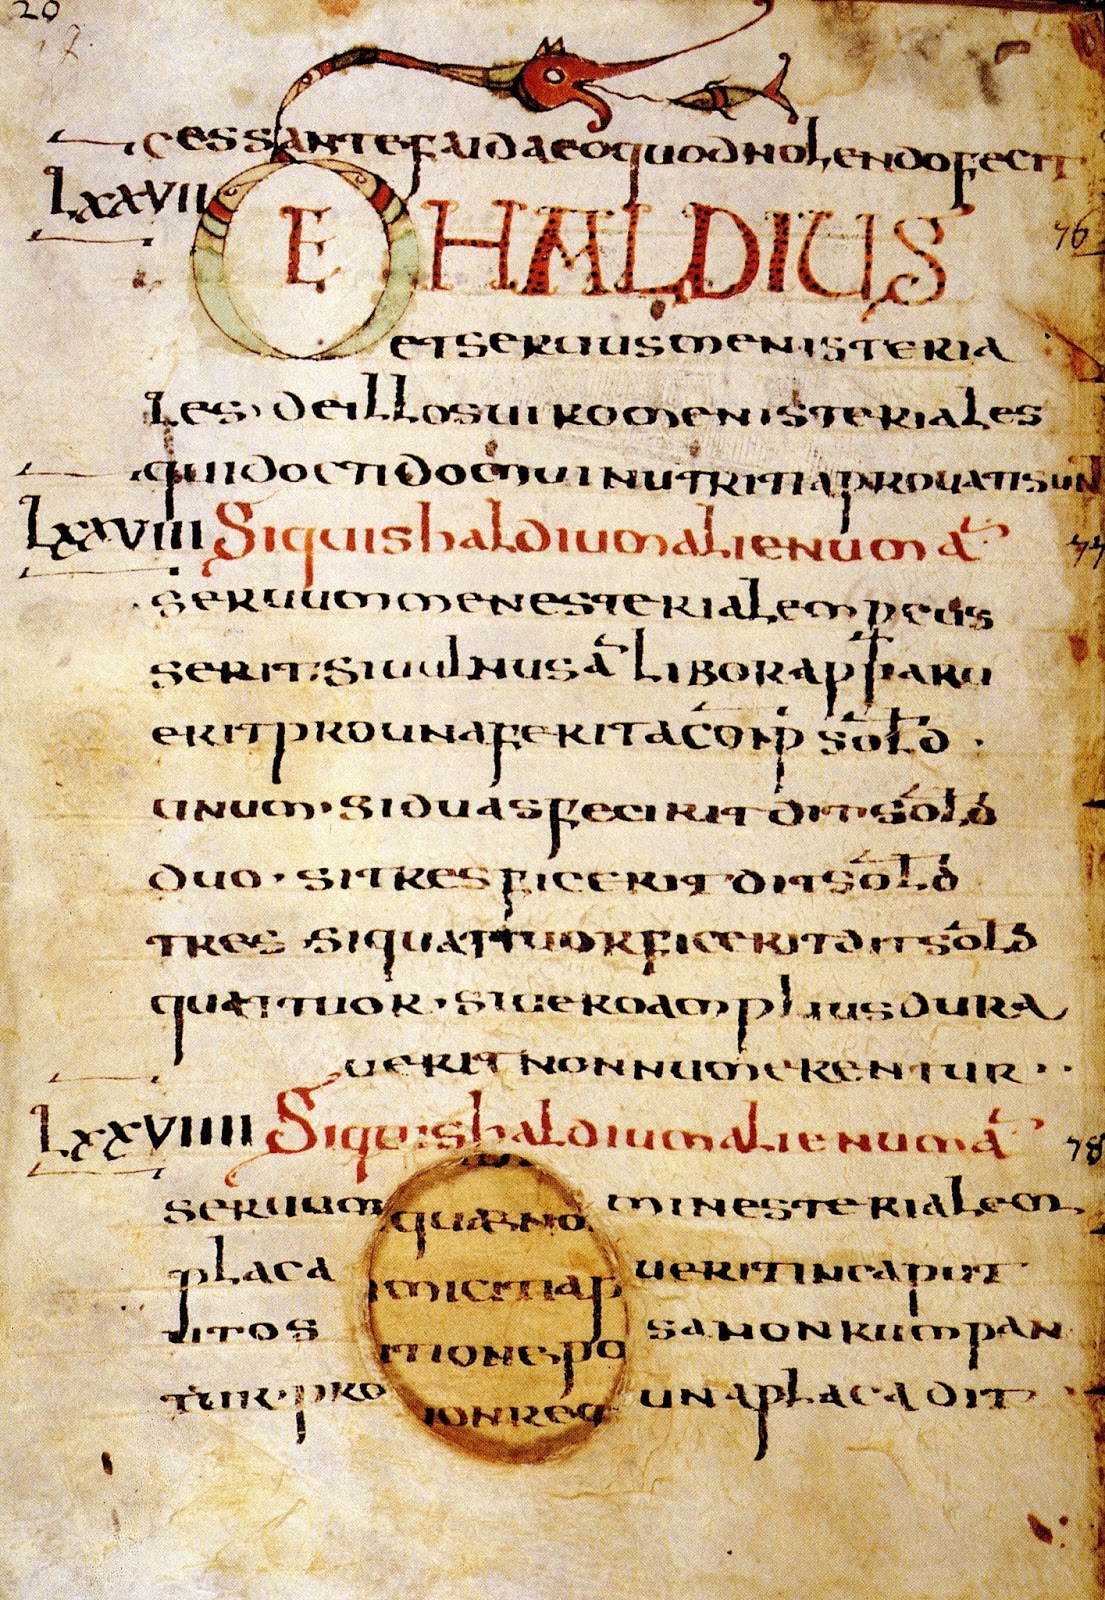 20
cessante faida eo quod nolendo fecit
LXXVII DE HALDIUS 76
et servus menisteria
les, de illos viro menisteriales
qui docti domui nutriti aprovati sunt
LXXVIII Si quis haldium alienum a̅ 77
servum menesterialem percus
serit: si vulnus a̅ libor apparu
erit pro una ferita co̅mp so̅ld ·
unum · si duas fecirit dit so̅ld
duo · si tres ficerit dit so̅ld
tres · si quattuor ficerit dit so̅ld
quattuor · si vero amplius dura
verit non numerentur · ·
LXXVIIII Si quis haldium alienum a̅ 78
servum minesterialem
placa verit in caput
ut os sa non rumpan
tur · pro una placa dit
quæ no
micitia p
itione po
ion req